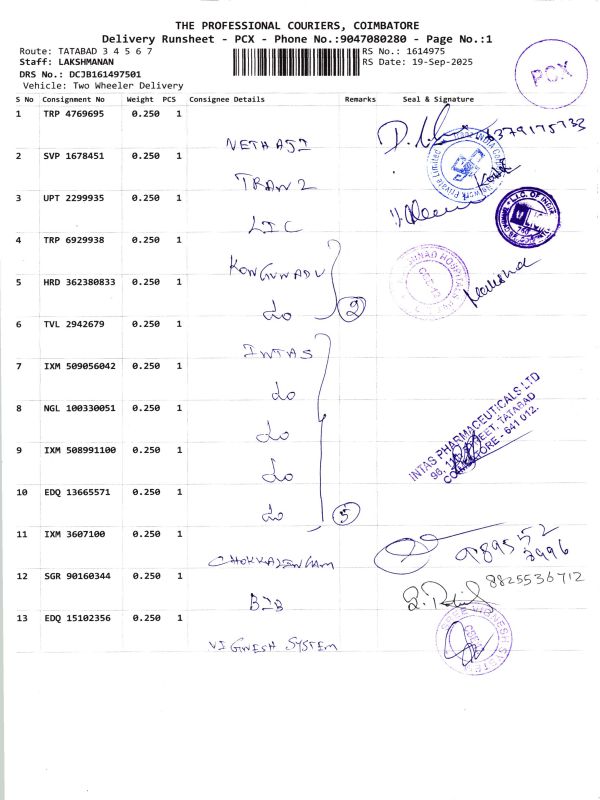 THE PROFESSIONAL COURIERS, COIMBATORE
Delivery Runsheet - PCX - Phone No.:9047080280 - Page No.:1
Route: TATABAD 3 4 5 6 7
RS No.: 1614975
Staff: LAKSHMANAN
RS Date: 19-Sep-2025
DRS No.: DCJB161497501
Vehicle: Two Wheeler Delivery
PCX
S No Consignment No Weight PCS Consignee Details Remarks Seal & Signature
1 TRP 4769695 0.250 1
NETHAJI
2 SVP 1678451 0.250 1
3 UPT 2299935 0.250 1
LIC
L.I.C. OF INDIA
4 TRP 6929938 0.250 1
KONGUNADU
5 HRD 362380833 0.250 1
do
2
6 TVL 2942679 0.250 1
INTAS
7 IXM 509056042 0.250 1
do
8 NGL 100330051 0.250 1
do
INTAS PHARMACEUTICALS LTD
9 IXM 508991100 0.250 1
do
10 EDQ 13665571 0.250 1
do
5
11 IXM 3607100 0.250 1
CHOKKALINGAM
12 SGR 90160344 0.250 1
8825536712
13 EDQ 15102356 0.250 1
VIGNESH SYSTEM